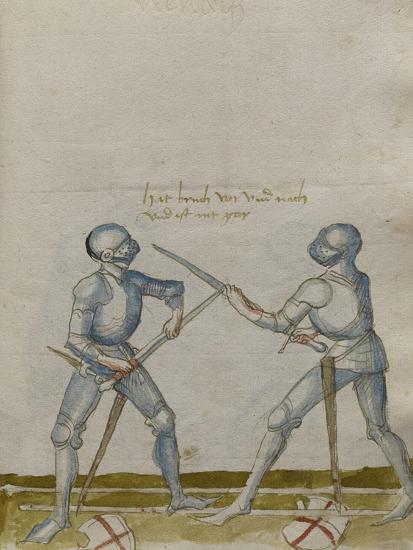 hat bruch vor und nach
und ist nit gar